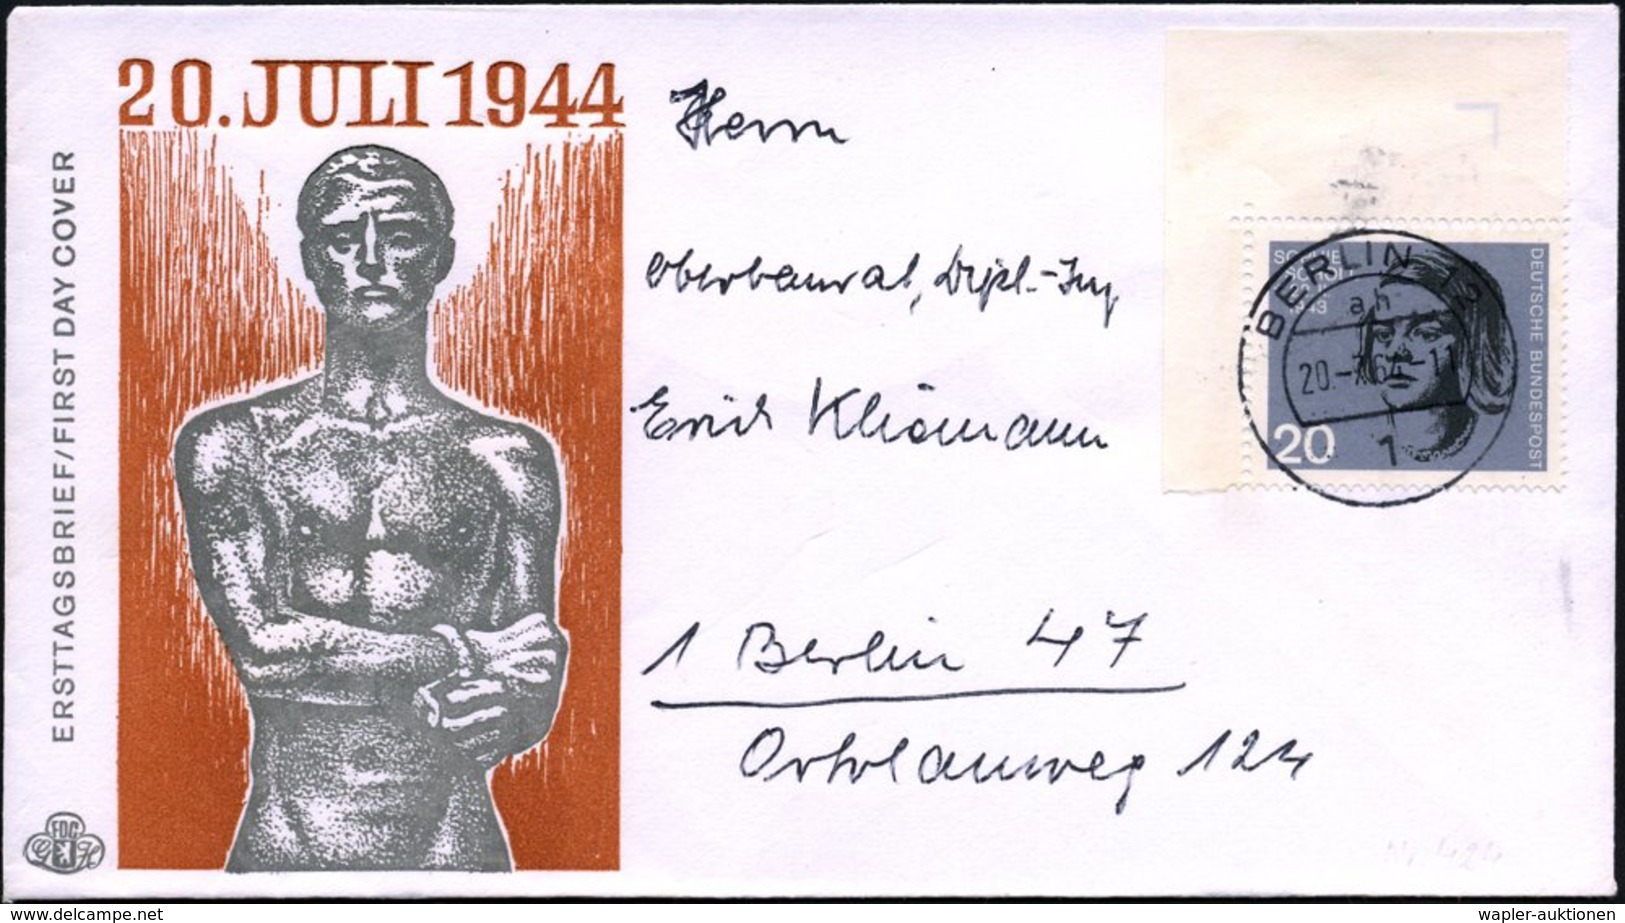 20. JULI 1944
ERSTTAGSBRIEF/FIRST DAY COVER
FDC
G H
Herrn
Oberbaurat, Dipl.-Ing
Erich
1 Berlin 47
Ortolanweg 124
SOPHIE
SCHOLL
1943
DEUTSCHE BUNDESPOST
20
BERLIN 12
ah
20.-7.64-11
1
www.delcampe.net
wapler-auktionen